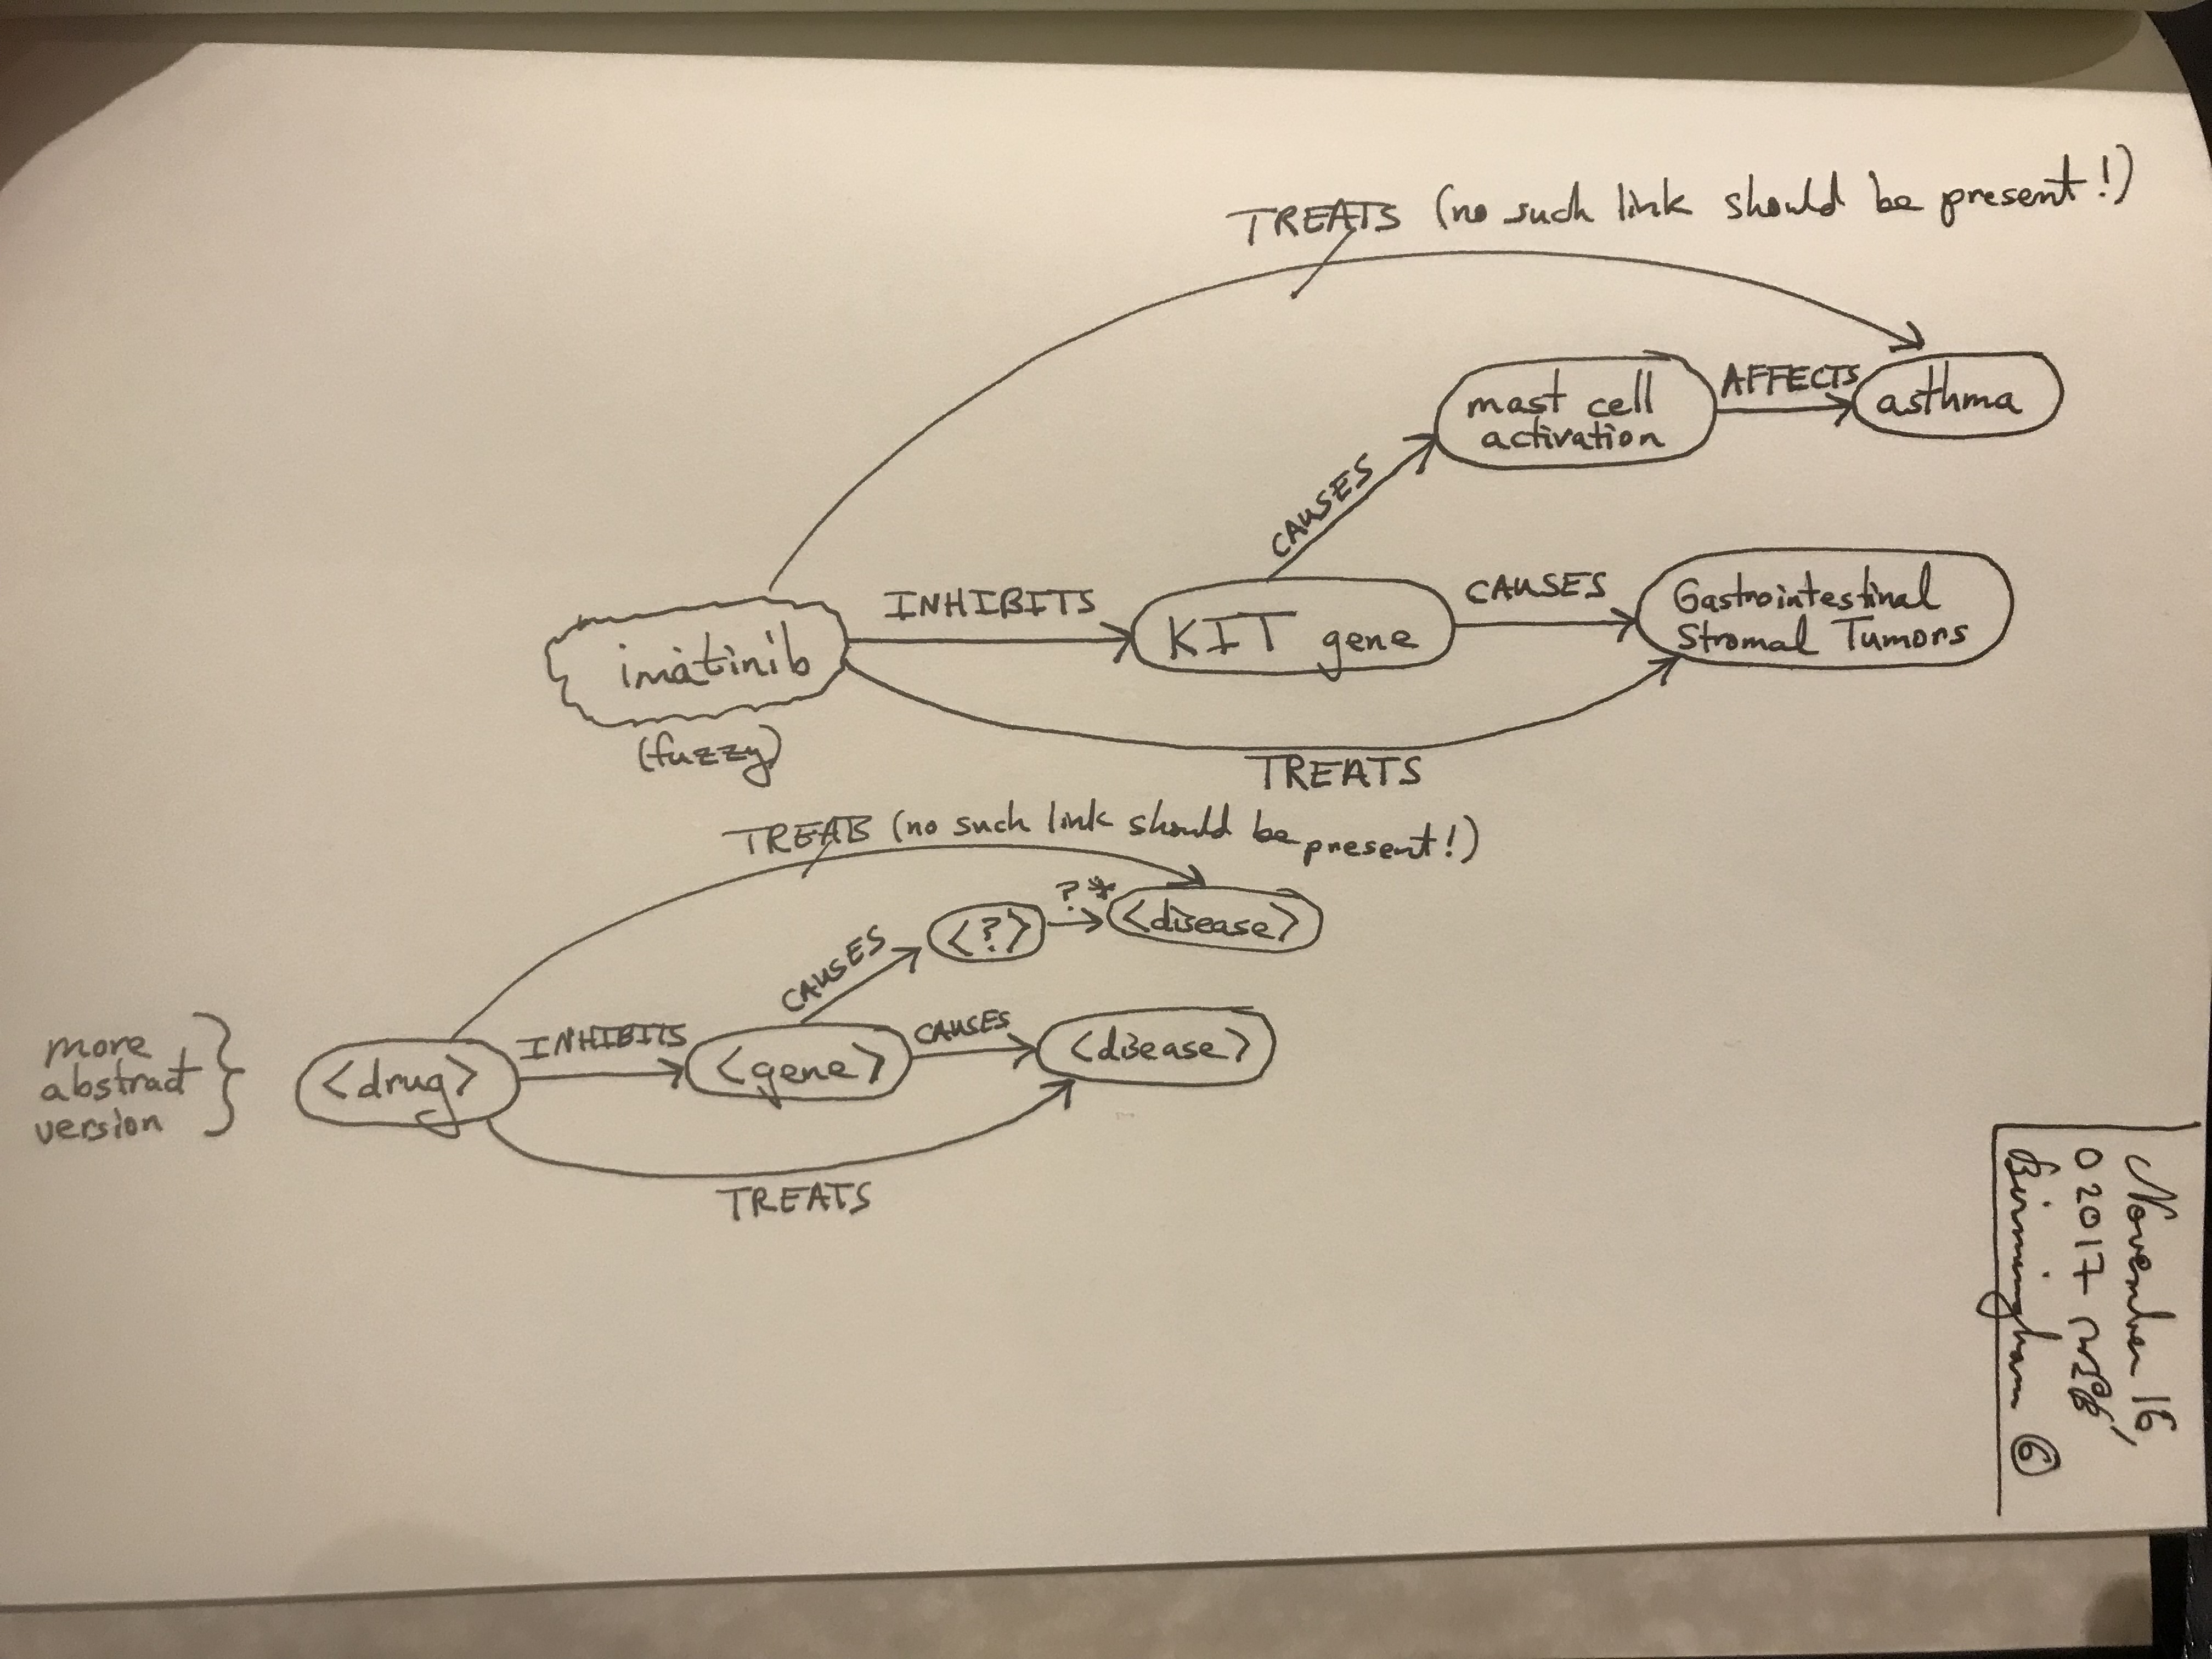 TREATS (no such link should be present!)
mast cell
activation
AFFECTS
asthma
CAUSES
imatinib
(fuzzy)
INHIBITS
KIT gene
CAUSES
Gastrointestinal
Stromal Tumors
TREATS
TREATS (no such link should be present!)
<?>
?*
<disease>
CAUSES
more
abstract
version
<drug>
INHIBITS
<gene>
CAUSES
<disease>
TREATS
November 16,
02017
Birmingham 6